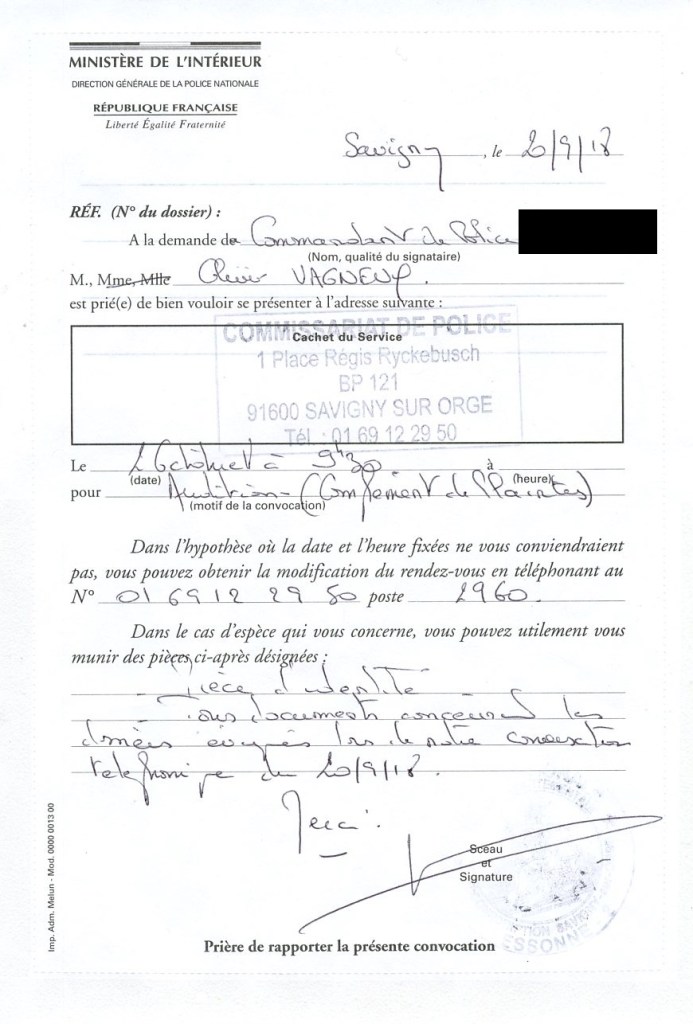 MINISTÈRE DE L'INTÉRIEUR
DIRECTION GÉNÉRALE DE LA POLICE NATIONALE
RÉPUBLIQUE FRANÇAISE
Liberté Égalité Fraternité
Savigny, le 20/9/18
RÉF. (N° du dossier) :
A la demande de Commandant de Police
(Nom, qualité du signataire)
M., Mme, Mlle Olivier VAGNEUX.
est prié(e) de bien vouloir se présenter à l'adresse suivante :
COMMISSARIAT DE POLICE
Cachet du Service
1 Place Régis Ryckebusch
BP 121
91600 SAVIGNY SUR ORGE
Tél. : 01 69 12 29 50
Le 2 Octobre à 9h30 à
(date) (heure)
pour Audition (Complément de Plaintes)
(motif de la convocation)
Dans l'hypothèse où la date et l'heure fixées ne vous conviendraient
pas, vous pouvez obtenir la modification du rendez-vous en téléphonant au
N° 01 69 12 29 50 poste 2960.
Dans le cas d'espèce qui vous concerne, vous pouvez utilement vous
munir des pièces ci-après désignées :
- Pièce d'identité
- Tous documents concernant les
données évoquées lors de notre conversation
telephonique du 20/9/18.
Merci.
Sceau
et
Signature
ESSONNE
Prière de rapporter la présente convocation
Imp. Adm. Melun - Mod. 0000 0013 00